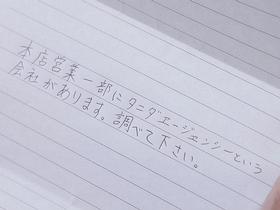 本店営業一部にタニダエージェンシーという
会社があります。調べて下さい。